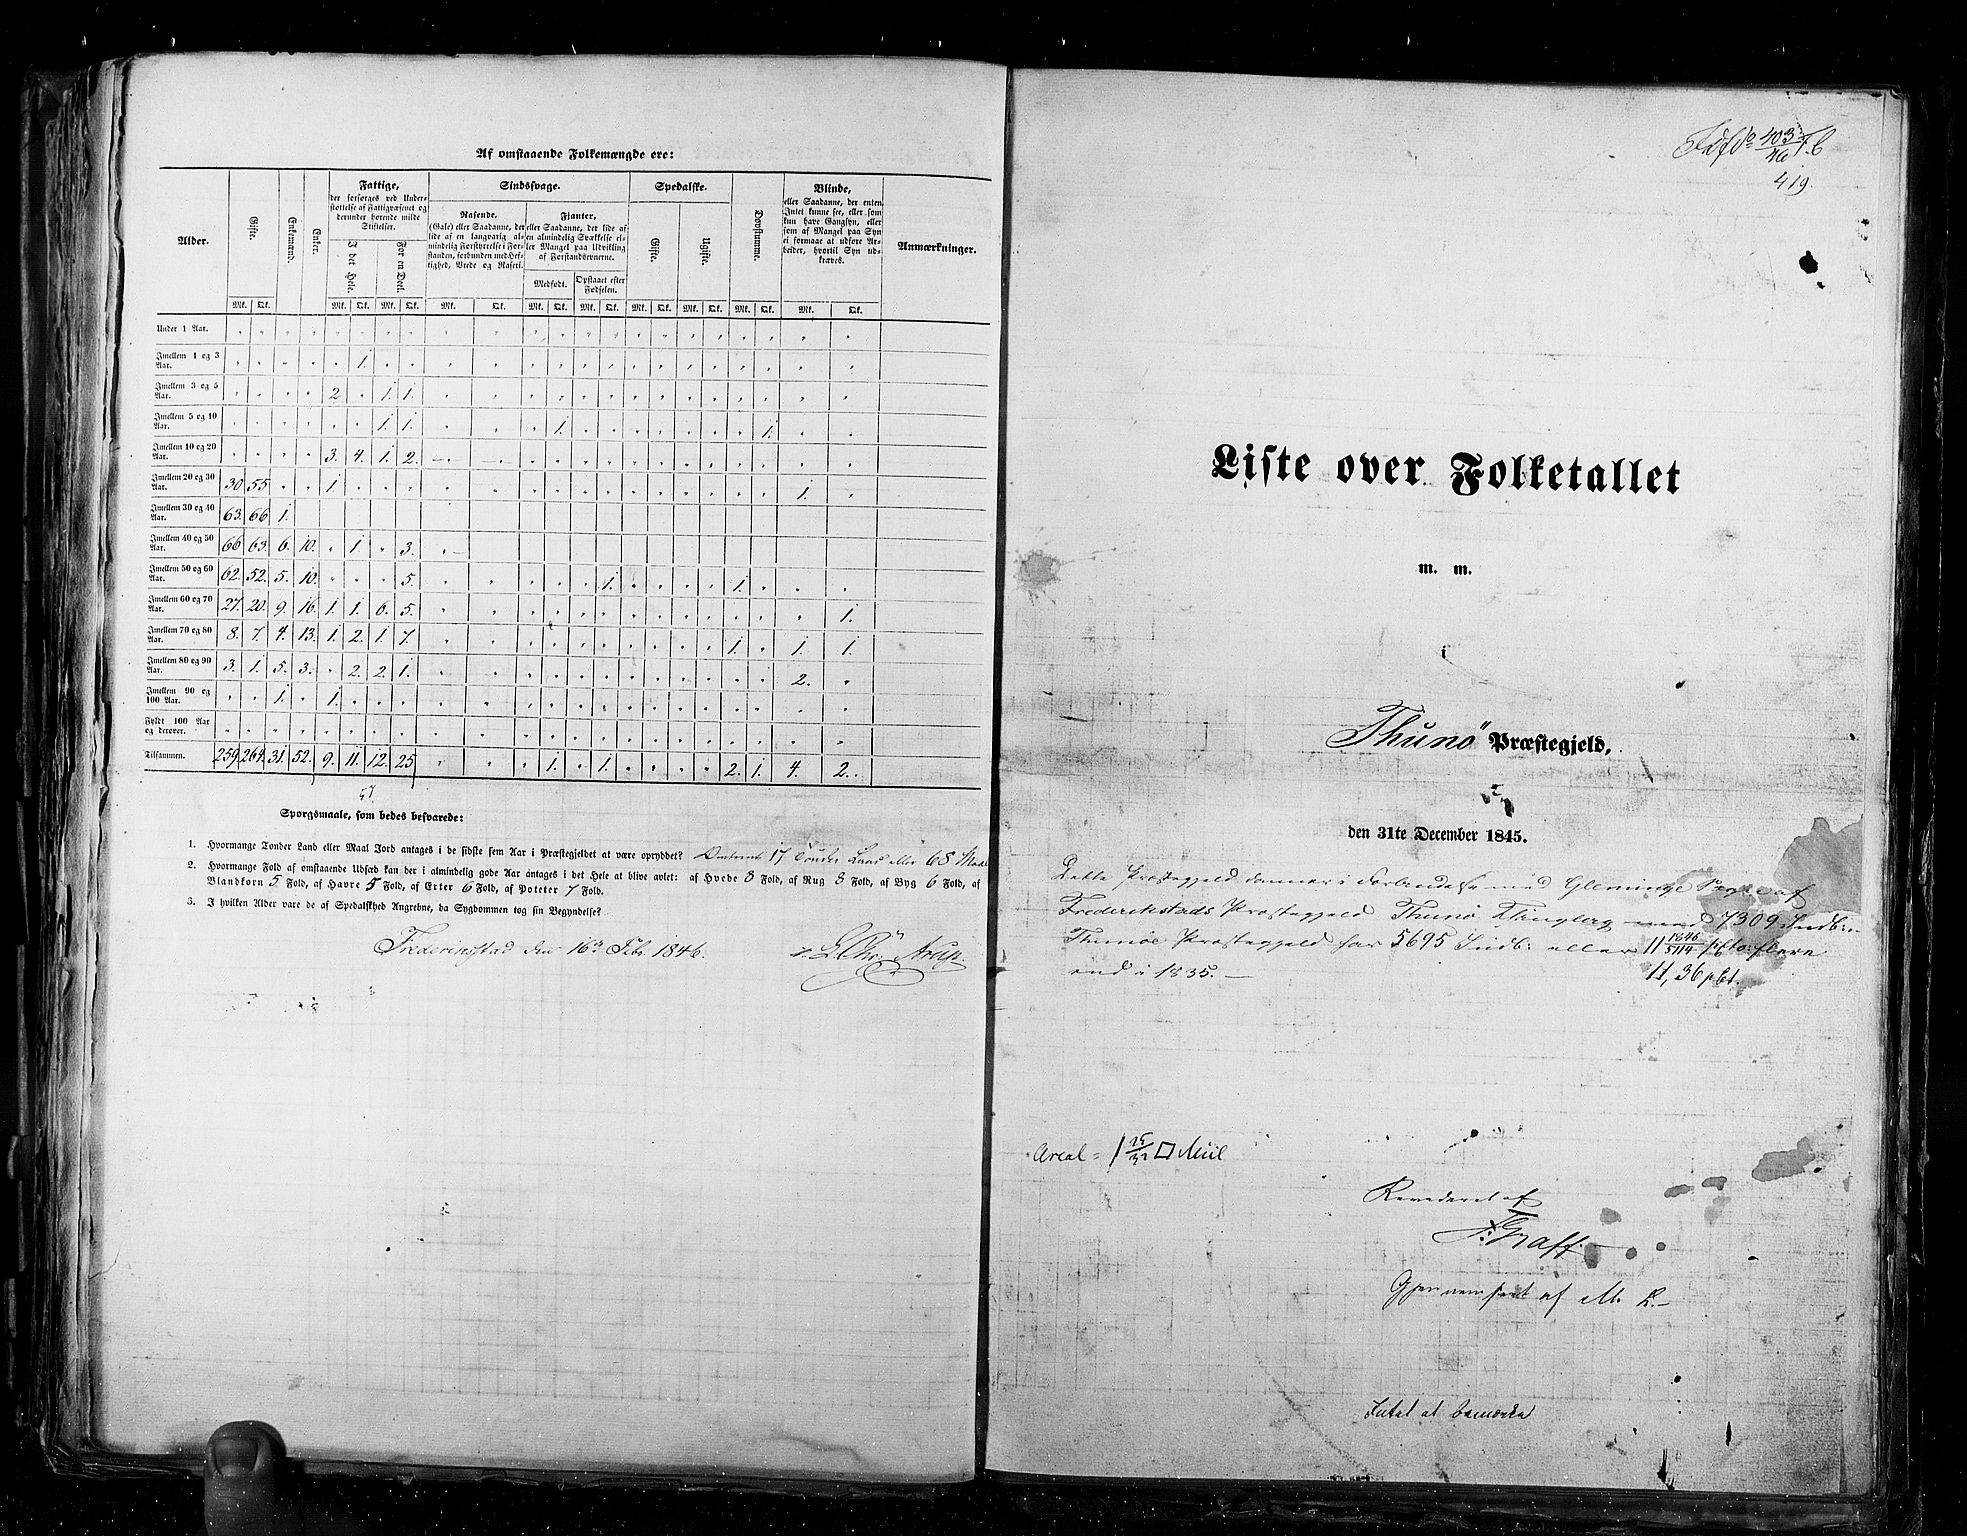 Af omstaaende Folkemængde ere:
Alder. Gifte. Enkemænd. Enker. Fattige, der forsørges ved Understøttelse af Fattigvæsenet og derunder hørende milde Stiftelser. Sindssvage. Spedalske. Døvstumme. Blinde, eller Saadanne, der enten Intet kunne see, eller som kun have Gangsyn, eller som af Mangel paa Syn ei formaae at udføre Arbeider, hvortil Syn udkræves. Anmærkninger.
I det Hele. For en Deel. Rasende. (Gale) eller Saadanne, der lide af en langvarig almindelig Forstyrrelse i Forstanden, forbunden med Heftighed, Vrede og Raseri. Fjanter, eller Saadanne, der lide af en almindelig Svækkelse eller Mangel paa Udvikling af Forstandsevnerne. Gifte. Ugifte.
Medfødt. Opstaaet efter Fødselen.
Mk. Qk. Mk. Qk. Mk. Qk. Mk. Qk. Mk. Qk. Mk. Qk. Mk. Qk. Mk. Qk. Mk. Qk. Mk. Qk.
Under 1 Aar.
Imellem 1 og 3 Aar. 1.
Imellem 3 og 5 Aar. 2 1. 1.
Imellem 5 og 10 Aar. 1. 1. 1. 1.
Imellem 10 og 20 Aar. 3. 4. 1. 2.
Imellem 20 og 30 Aar. 30 55 1 1.
Imellem 30 og 40 Aar. 63. 66 1.
Imellem 40 og 50 Aar. 66 63. 6. 10. 1 3.
Imellem 50 og 60 Aar. 62. 52. 5. 10. 5. 1. 1.
Imellem 60 og 70 Aar. 27. 20. 9. 16. 1. 1. 6. 5. 1.
Imellem 70 og 80 Aar. 8. 7. 4. 13. 1. 2. 1. 7. 1. 1. 1.
Imellem 80 og 90 Aar. 3. 1. 5. 3. 2. 2. 1. 2.
Imellem 90 og 100 Aar. 1. 1.
Fyldt 100 Aar og derover.
Tilsammen. 259. 264. 31. 52. 9. 11. 12. 25 1. 1. 2. 1. 4. 2.
57
Spørgsmaale, som bedes besvarede:
1. Hvormange Tønder Land eller Maal Jord antages i de sidste fem Aar i Præstegjeldet at være opryddet? 17 Tønder Land eller 68 Maal
2. Hvormange Fold af omstaaende Udsæd kan der i almindelig gode Aar antages i det Hele at blive avlet: af Hvede 8 Fold, af Rug 8 Fold, af Byg 6 Fold, af
Blandkorn 5 Fold, af Havre 5 Fold, af Erter 6 Fold, af Poteter 7 Fold.
3. I hvilken Alder vare de af Spedalskhed Angrebne, da Sygdommen tog sin Begyndelse?
Frederikstad den 16de Febr. 1846.
403
46
419.
Liste over Folketallet
m. m.
i
Thunø Præstegjeld,
den 31te December 1845.
Dette Præstegjeld danner i Forbindelse med Glemminge Sogn af
Frederikstads Præstegjeld Thunø Tinglag med 7309 Indb:
Thunøe Præstegjeld har 5695 Indb: eller 11 pCto: flere
end i 1835. — 11,36 pCt.
Areal = 1 25/32 □ Miil
Revideret af
Graff
Gjennemseet af M. R.
Intet at bemærke